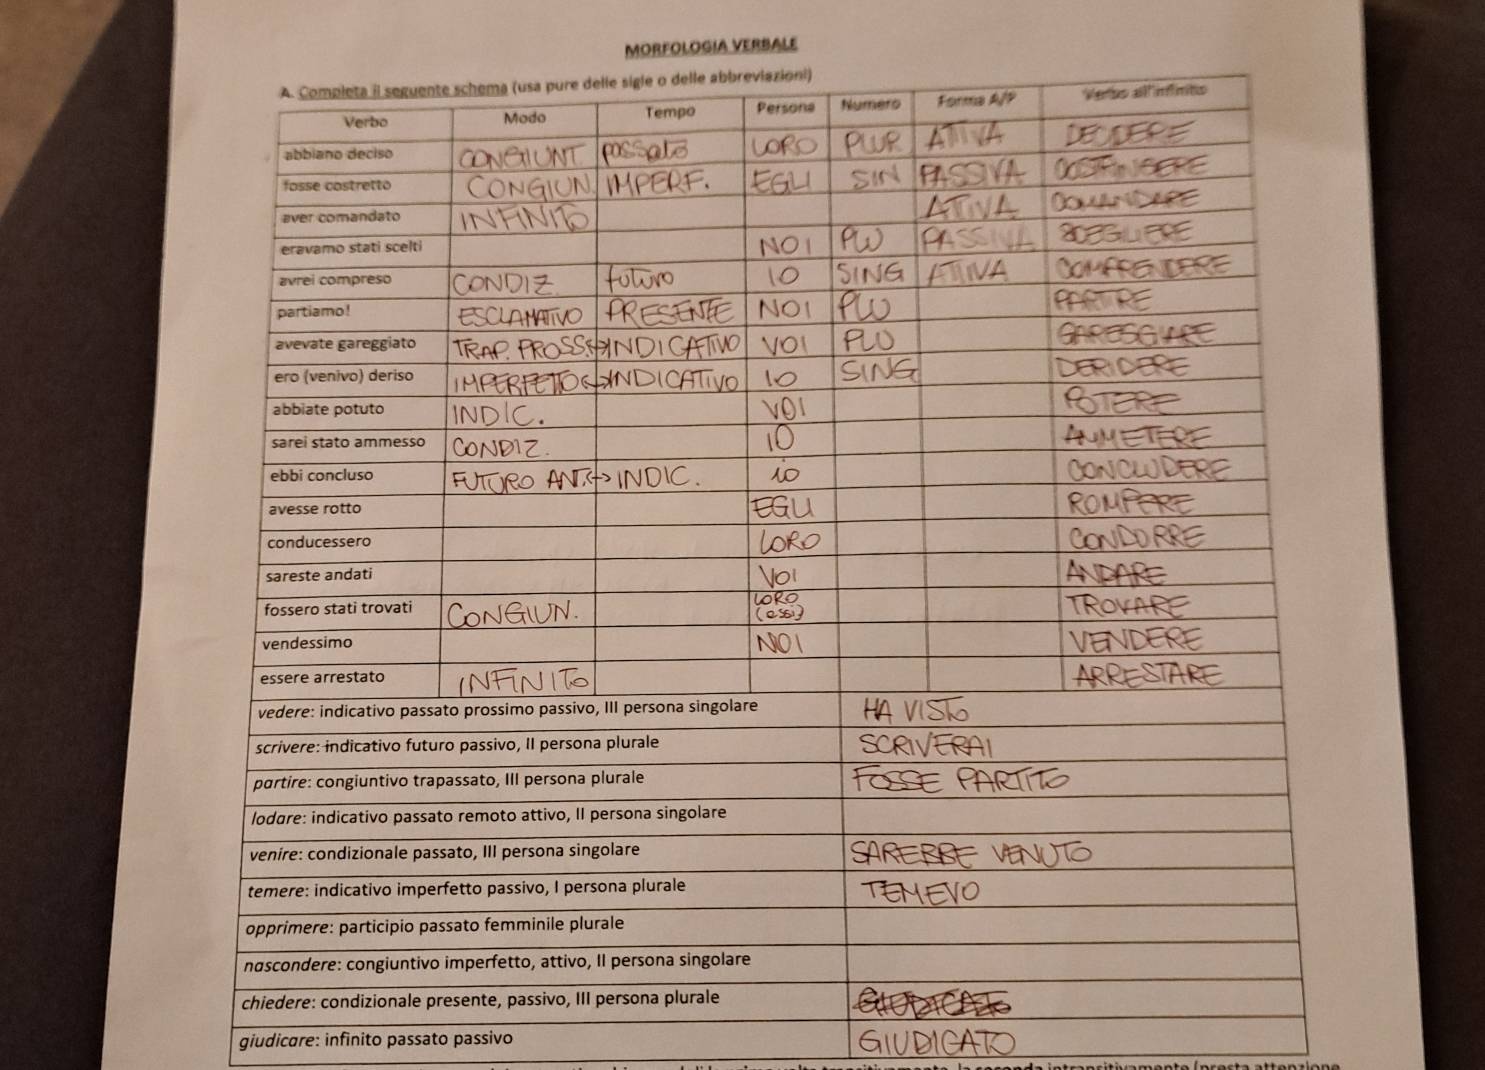 MORFOLOGIA VERBALE
A. Completa il seguente schema (usa pure delle sigle o delle abbreviazioni)
Verbo Modo Tempo Persona Numero Forma A/P Verbo all'infinito
abbiano deciso CONGIUNT passato LORO PLUR ATTIVA DECIDERE
fosse costretto CONGIUN. IMPERF. EGLI SIN PASSIVA COSTRINGERE
aver comandato INFINITO ATTIVA COMANDARE
eravamo stati scelti NOI PLU PASSIVA SCEGLIERE
avrei compreso CONDIZ. futuro IO SING ATTIVA COMPRENDERE
partiamo! ESCLAMATIVO PRESENTE NOI PLU PARTIRE
avevate gareggiato TRAP. PROSS. <-> INDICATIVO VOI PLU GAREGGIARE
ero (venivo) deriso IMPERFETTO <-> INDICATIVO IO SING DERIDERE
abbiate potuto INDIC. VOI POTERE
sarei stato ammesso CONDIZ. IO AMMETERE
ebbi concluso FUTURO ANT. <-> INDIC. io CONCLUDERE
avesse rotto EGLI ROMPERE
conducessero LORO CONDORRE
sareste andati VOI ANDARE
fossero stati trovati CONGIUN. LORO (essi) TROVARE
vendessimo NOI VENDERE
essere arrestato INFINITO ARRESTARE
vedere: indicativo passato prossimo passivo, III persona singolare HA VISTO
scrivere: indicativo futuro passivo, II persona plurale SCRIVERAI
partire: congiuntivo trapassato, III persona plurale FOSSE PARTITO
lodare: indicativo passato remoto attivo, II persona singolare
venire: condizionale passato, III persona singolare SAREBBE VENUTO
temere: indicativo imperfetto passivo, I persona plurale TEMEVO
opprimere: participio passato femminile plurale
nascondere: congiuntivo imperfetto, attivo, II persona singolare
chiedere: condizionale presente, passivo, III persona plurale
giudicare: infinito passato passivo GIUDICATO